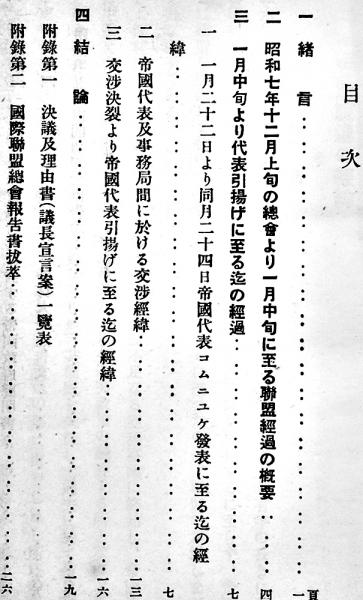 目次
頁
一 緒言……一
二 昭和七年十二月上旬の總會より一月中旬に至る聯盟經過の概要……四
三 一月中旬より代表引揚げに至る迄の經過……七
一 一月二十二日より同月二十四日帝國代表コムニユケ發表に至る迄の經
緯……七
二 帝國代表及事務局間に於ける交渉經緯……一三
三 交渉決裂より帝國代表引揚げに至る迄の經緯……一六
四 結論……一九
附錄第一 決議及理由書(議長宣言案)一覽表
附錄第二 國際聯盟總會報告書拔萃……二六